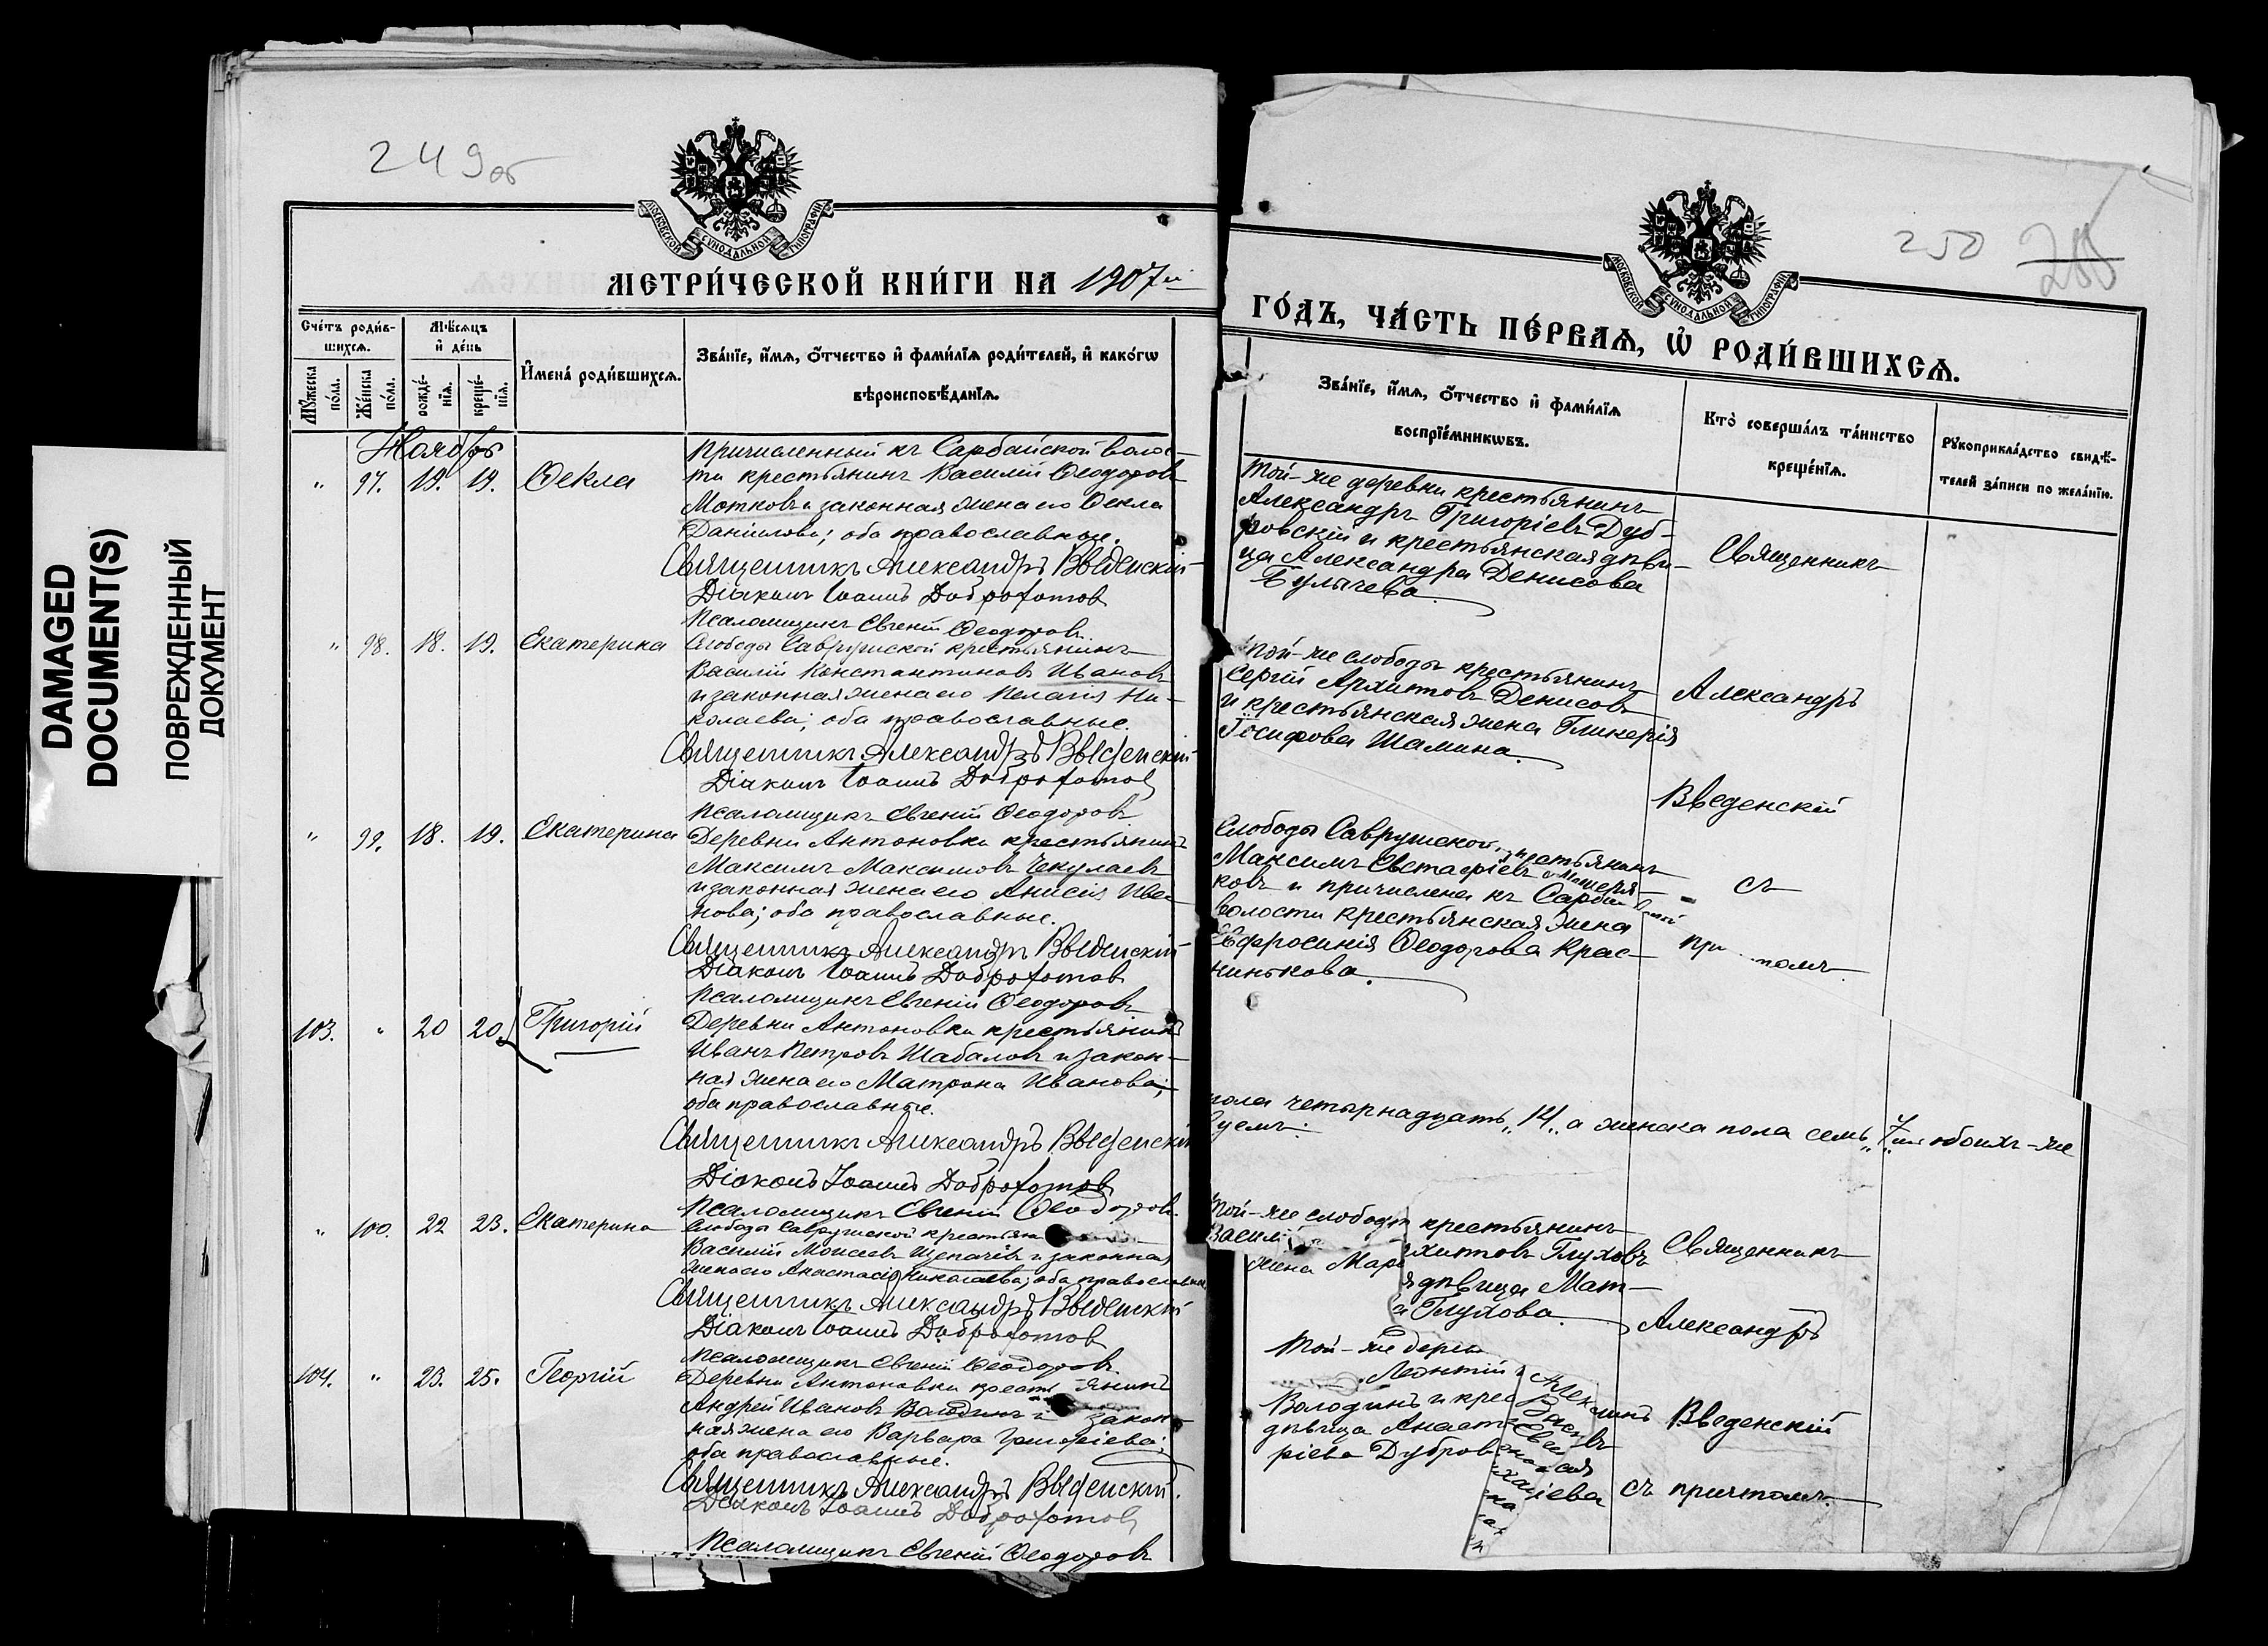 DAMAGED
DOCUMENT(S)
ПОВРЕЖДЕННЫЙ
ДОКУМЕНТ
249об
МОСКОВСКОЙ СѴНОДАЛЬНОЙ ТИПОГРАФІИ
МЕТРИ́ЧЕСКОЙ КНИ́ГИ НА 1907й
Сче́тъ роди́в-
шихсѧ.
Мѣ́сѧцъ
и҆ де́нь
Мꙋ́жеска
по́ла.
Же́нска
по́ла.
рожде́-
нїѧ.
креще́-
нїѧ.
И҆мена̀ роди́вшихсѧ.
Зва́нїе, и҆́мѧ, ѻ҆́тчество и҆ фами́лїѧ роди́телей, и҆ како́гѡ
вѣроисповѣ́данїѧ.
Ноябрь
" 97. 19. 19. Ѳекла
Причисленный къ Сарбайской волос-
ти крестьянинъ Василій Ѳеодоровъ
Мотковъ и законная жена его Ѳекла
Даніилова; оба православные.
Священникъ Александръ Введенскій
Діаконъ Іоаннъ Доброхотов
Псаломщикъ Евгеній Ѳеодоровъ
" 98. 18. 19. Екатерина
Слободы Саврушской крестьянинъ
Василій Константиновъ Ивановъ
и законная жена его Пелагія Ни-
колаева; оба православные.
Священникъ Александръ Введенскій
Діаконъ Іоаннъ Доброхотов
Псаломщикъ Евгеній Ѳеодоровъ
" 99. 18. 19. Екатерина
Деревни Антоновки крестьянинъ
Максимъ Максимовъ Чекулаевъ
и законная жена его Анисія Ива-
нова; оба православные.
Священникъ Александръ Введенскій
Діаконъ Іоаннъ Доброхотов
Псаломщикъ Евгеній Ѳеодоровъ
103. " 20 20. Григорій
Деревни Антоновки крестьянинъ
Иванъ Петровъ Шабаловъ и закон-
ная жена его Матрона Иванова;
оба православные.
Священникъ Александръ Введенскій
Діаконъ Іоаннъ Доброхотовъ
Псаломщикъ Евгеній Ѳеодоровъ
" 100. 22 23. Екатерина
Слободы Саврушской крестьян
Василій Моисеевъ Щепачёвъ и законная
жена его Анастасія Николаева; оба православные
Священникъ Александръ Введенскій
Діаконъ Іоаннъ Доброхотов
Псаломщикъ Евгеній Ѳеодоровъ
104. " 23. 25. Георгій
Деревни Антоновки крестьянинъ
Андрей Ивановъ Володинъ и закон-
ная жена его Варвара Григоріева;
оба православные.
Священникъ Александръ Введенскій.
Діаконъ Іоаннъ Доброхотов
Псаломщикъ Евгеній Ѳеодоровъ
250 255
МОСКОВСКОЙ СѴНОДАЛЬНОЙ ТИПОГРАФІИ
ГО́ДЪ, ЧА́СТЬ ПЕ́РВАѦ, Ѡ҆ РОДИ́ВШИХСѦ.
Зва́нїе, и҆́мѧ, ѻ҆́тчество и҆ фами́лїѧ
воспрїе́мникѡвъ.
Кто̀ соверша́лъ та́инство
креще́нїѧ.
Рꙋкоприкла́дство свидѣ́-
телей за́писи по жела́нїю.
Той-же деревни крестьянинъ
Александръ Григоріевъ Дуб-
ровскій и крестьянская дѣви-
ца Александра Денисова
Булычева.
Священникъ
Той-же слободы крестьянинъ
Сергій Архиповъ Денисовъ
и крестьянская жена Гликерія
Іосифова Шамина.
Александръ
Введенскій
Слободы Саврушской крестьянинъ
Максимъ Евстафіевъ Мещеря-
ковъ и причислена къ Сарбайской
волости крестьянская жена
Евфросинія Ѳеодорова Крас-
нинькова.
съ
при томъ
пола четырнадцать „14„ а женска пола семь „7„ обоихъ-же
Той-же слободы крестьянинъ
Васил хиповъ Глуховъ
жена Мар
я дѣвица Мат-
а Глухова.
Священникъ
Александръ
Той-же дерев
Леонтій
Володинъ и крес
дѣвица Анаст
ріева Дубров
Введенскій
съ причтомъ.